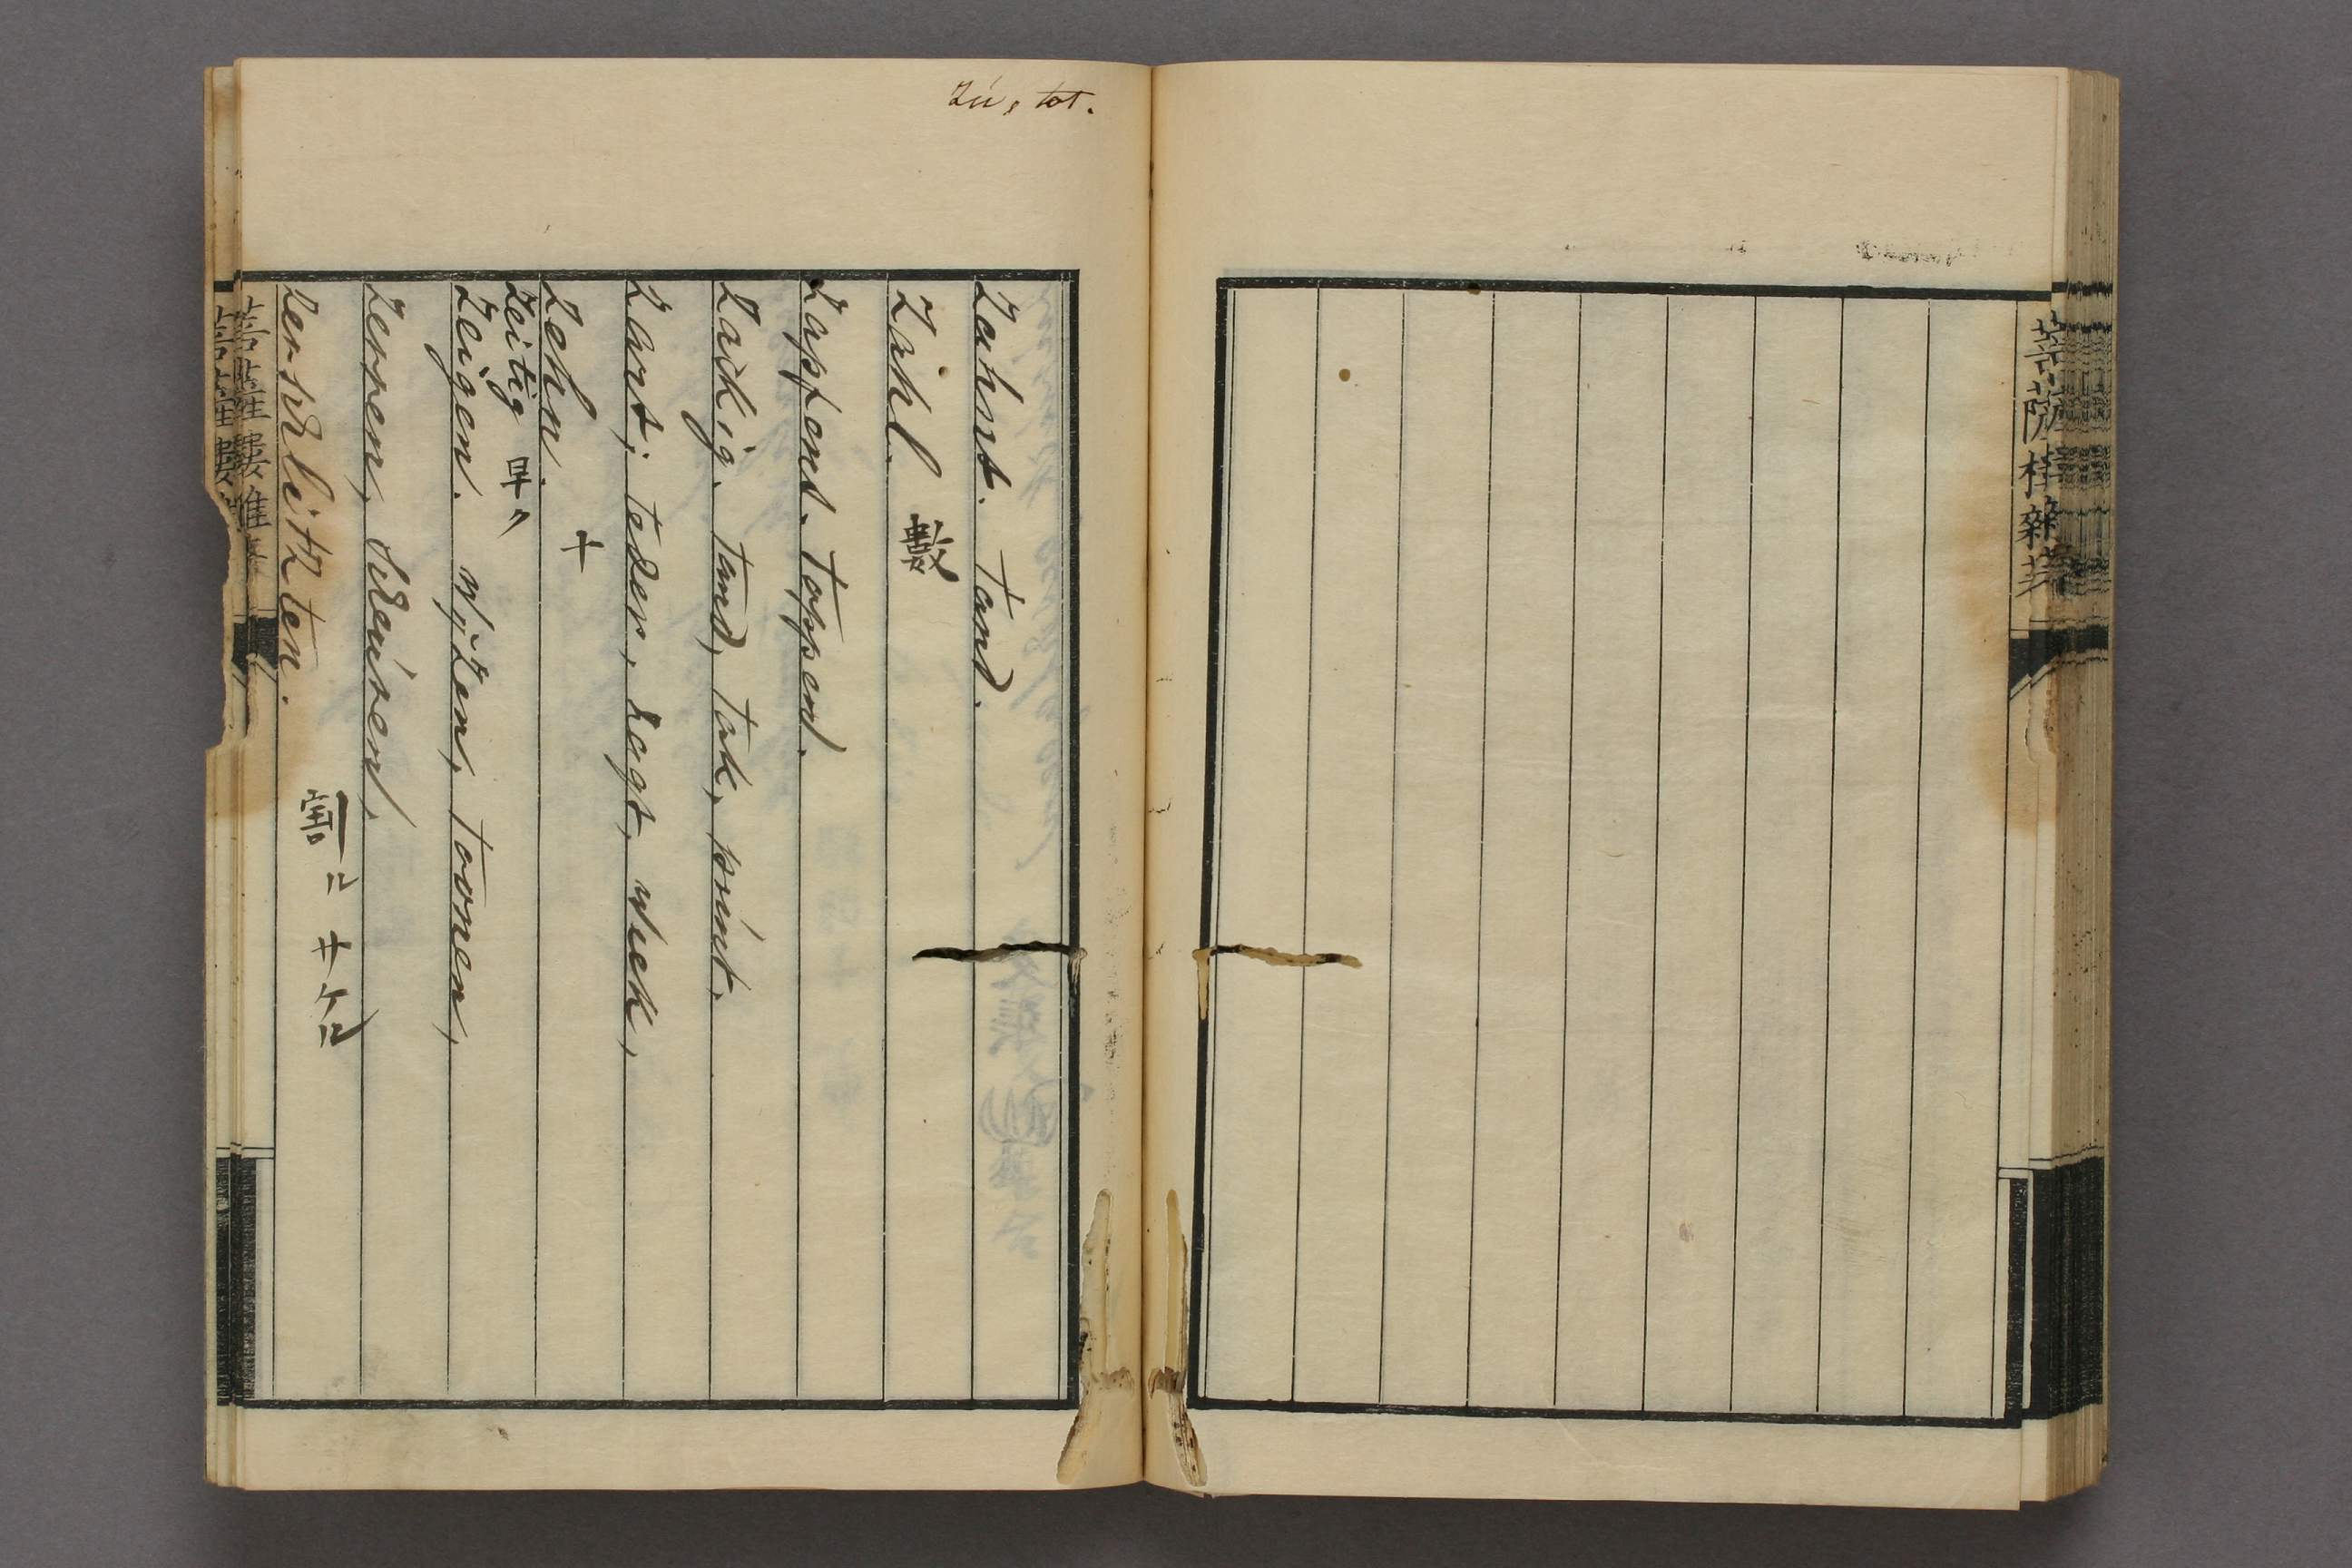 Zú, tot.
Zahnt. Tand.
Zahl. 數
Zapfend. Tappend.
Zackig. Tand, Tak, púnt.
Zart; teder, zagt, week,
Zehn. 十
Zeitig 早ク
Zeigen. wijzen, Toonen,
Zerren, scheúren,
Zerschlitzten. 割ル サケル